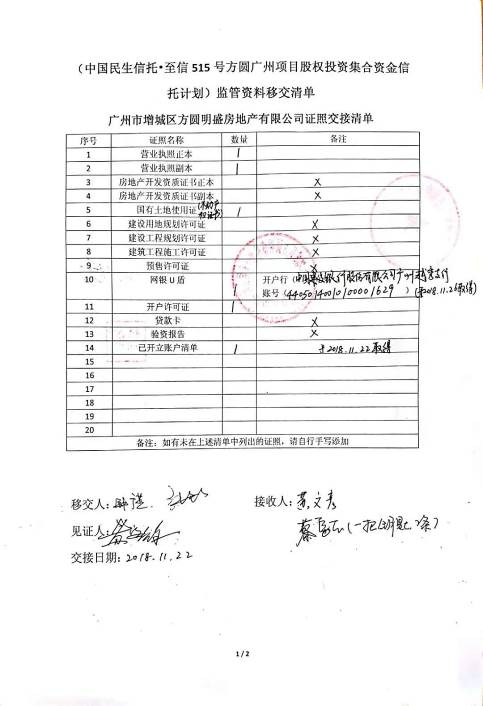 （中国民生信托•至信 515 号方圆广州项目股权投资集合资金信
托计划）监管资料移交清单
广州市增城区方圆明盛房地产有限公司证照交接清单
序号 证照名称 数量 备注
1 营业执照正本 1
2 营业执照副本 1
3 房地产开发资质证书正本 X
4 房地产开发资质证书副本 X
5 国有土地使用证 (不动产权证书) 1
6 建设用地规划许可证 X
7 建设工程规划许可证 X
8 建筑工程施工许可证 X
9 预售许可证 X
10 网银 U 盾 1 开户行（中国建设银行股份有限公司广州 支行
账号（44050140010100001629）(2018.11.22取得)
11 开户许可证 1
12 贷款卡 X
13 验资报告 X
14 已开立账户清单 1 于2018.11.22取得
15
16
17
18
19
20
备注：如有未在上述清单中列出的证照，请自行手写添加
移交人： 接收人：
见证人： (一把钥匙
交接日期：2018.11.22
1 / 2